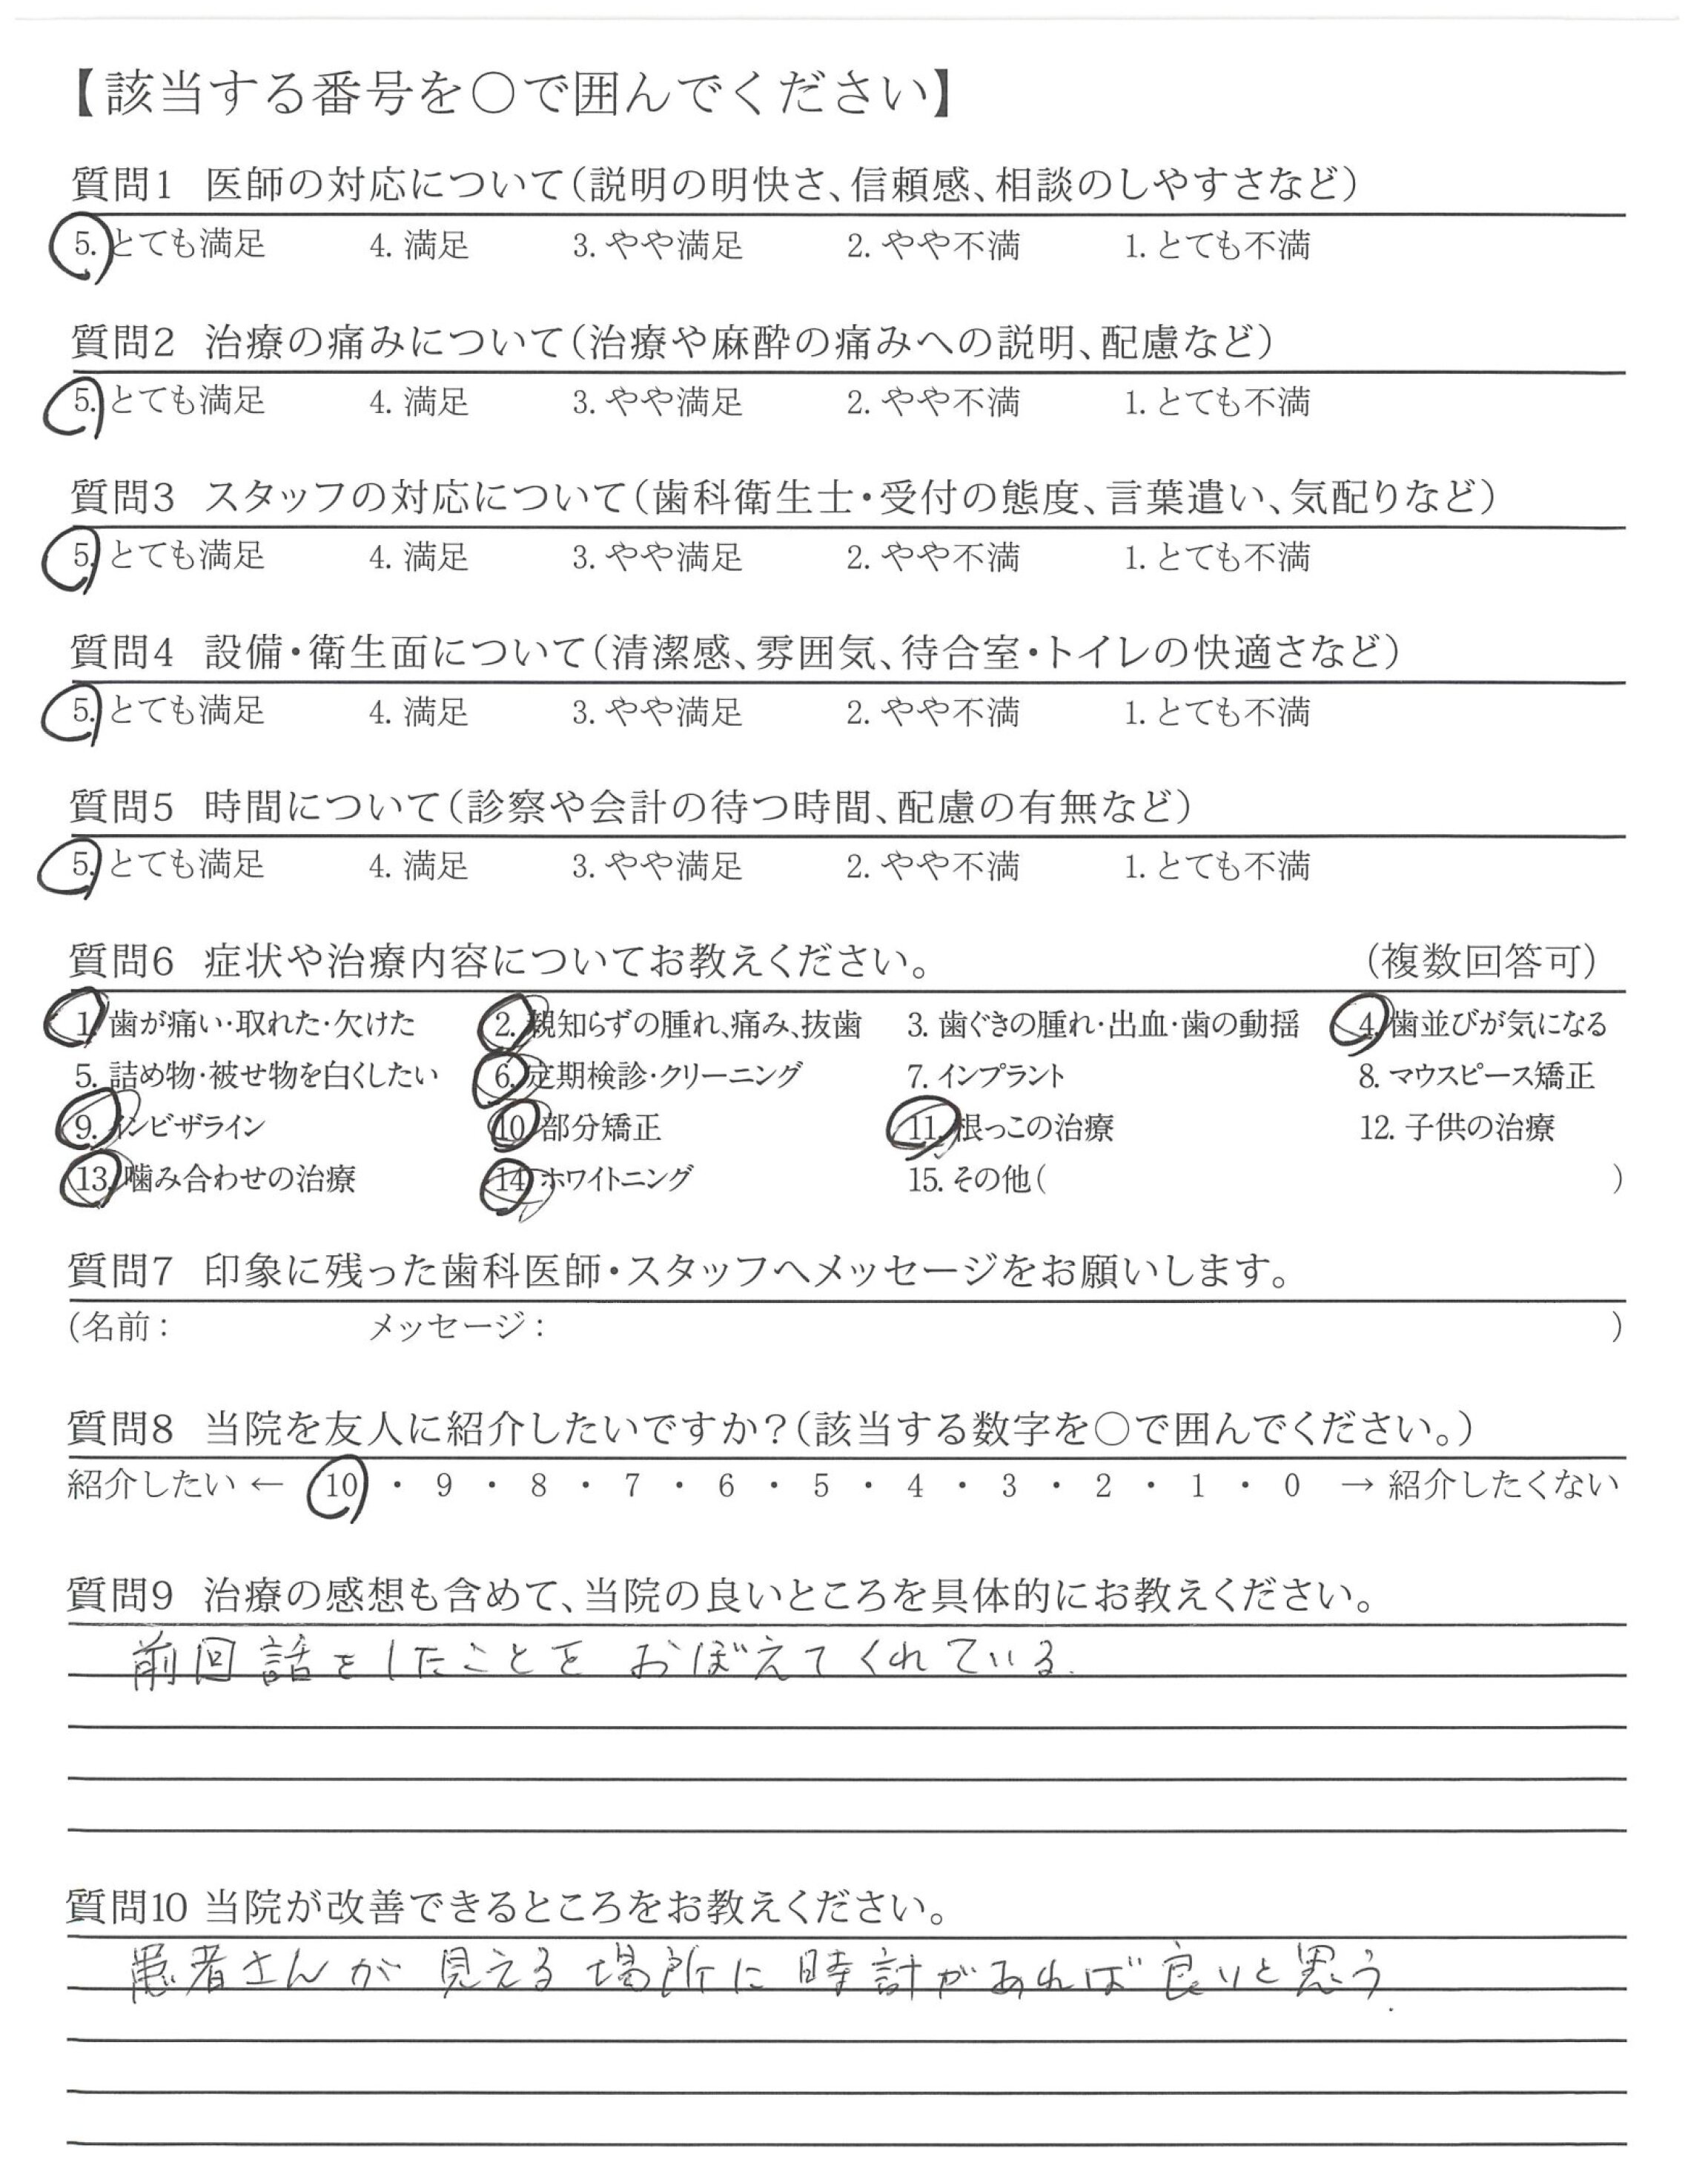 【該当する番号を○で囲んでください】
質問1 医師の対応について(説明の明快さ、信頼感、相談のしやすさなど)
5. とても満足 4. 満足 3. やや満足 2. やや不満 1. とても不満
質問2 治療の痛みについて(治療や麻酔の痛みへの説明、配慮など)
5. とても満足 4. 満足 3. やや満足 2. やや不満 1. とても不満
質問3 スタッフの対応について(歯科衛生士・受付の態度、言葉遣い、気配りなど)
5. とても満足 4. 満足 3. やや満足 2. やや不満 1. とても不満
質問4 設備・衛生面について(清潔感、雰囲気、待合室・トイレの快適さなど)
5. とても満足 4. 満足 3. やや満足 2. やや不満 1. とても不満
質問5 時間について(診察や会計の待つ時間、配慮の有無など)
5. とても満足 4. 満足 3. やや満足 2. やや不満 1. とても不満
質問6 症状や治療内容についてお教えください。 (複数回答可)
1. 歯が痛い・取れた・欠けた 2. 親知らずの腫れ、痛み、抜歯 3. 歯ぐきの腫れ・出血・歯の動揺 4. 歯並びが気になる
5. 詰め物・被せ物を白くしたい 6. 定期検診・クリーニング 7. インプラント 8. マウスピース矯正
9. インビザライン 10. 部分矯正 11. 根っこの治療 12. 子供の治療
13. 噛み合わせの治療 14. ホワイトニング 15. その他( )
質問7 印象に残った歯科医師・スタッフへメッセージをお願いします。
(名前: メッセージ: )
質問8 当院を友人に紹介したいですか?(該当する数字を○で囲んでください。)
紹介したい ← 10 ・ 9 ・ 8 ・ 7 ・ 6 ・ 5 ・ 4 ・ 3 ・ 2 ・ 1 ・ 0 → 紹介したくない
質問9 治療の感想も含めて、当院の良いところを具体的にお教えください。
前回話をしたことを おぼえてくれている.
質問10 当院が改善できるところをお教えください。
患者さんが 見える場所に 時計があれば良いと思う.